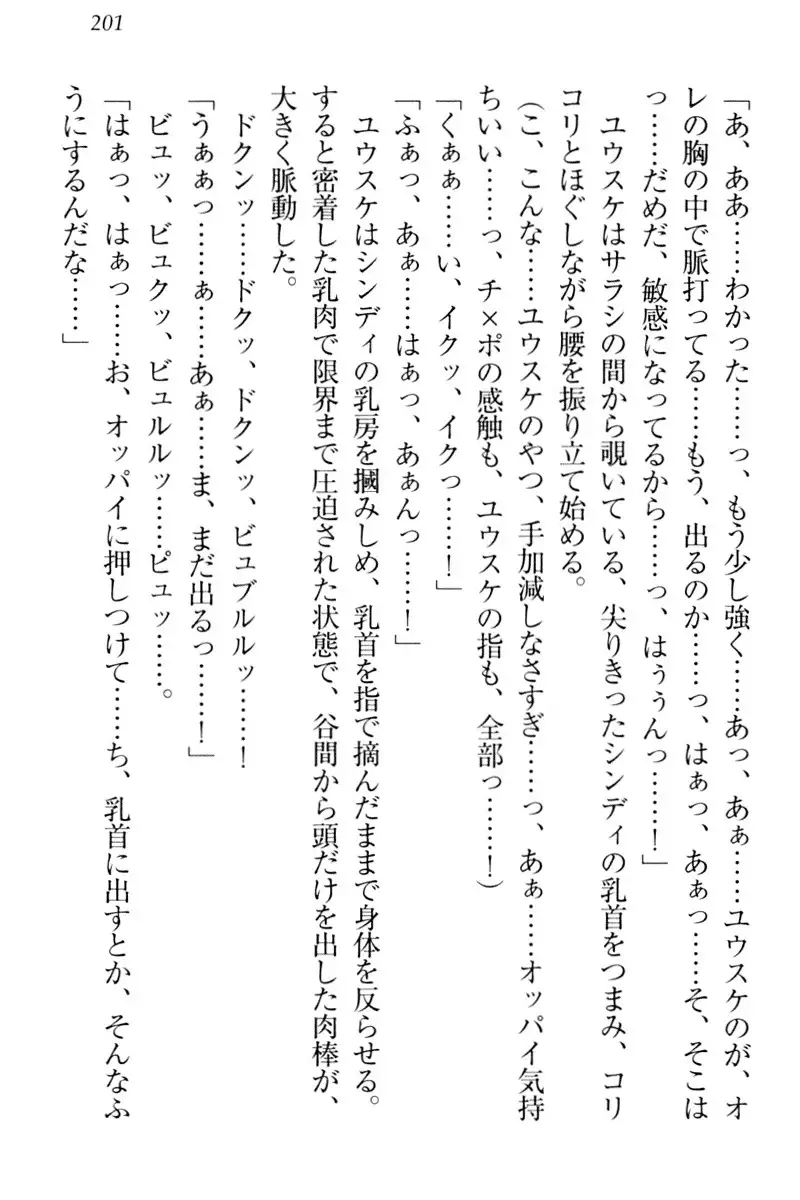 201
「あ、ああ……わかった……っ、もう少し強く……あっ、あぁ……ユウスケのが、オ
レの胸の中で脈打ってる……もう、出るのか……っ、はぁっ、あぁっ……そ、そこは
っ……だめだ、敏感になってるから……っ、はぅぅんっ……！」
　ユウスケはサラシの間から覗いている、尖りきったシンディの乳首をつまみ、コリ
コリとほぐしながら腰を振り立て始める。
（こ、こんな……ユウスケのやつ、手加減しなさすぎ……っ、あぁ……オッパイ気持
ちいい……っ、チ×ポの感触も、ユウスケの指も、全部っ……！）
「くぁぁ……い、イクッ、イクっ……！」
「ふぁっ、あぁ……はぁっ、あぁんっ……！」
　ユウスケはシンディの乳房を摑みしめ、乳首を指で摘んだままで身体を反らせる。
すると密着した乳肉で限界まで圧迫された状態で、谷間から頭だけを出した肉棒が、
大きく脈動した。
　ドクンッ……ドクッ、ドクンッ、ビュブルルッ……！
「うぁぁっ……ぁ……あぁ……ま、まだ出るっ……！」
　ビュッ、ビュクッ、ビュルルッ……ピュッ……。
「はぁっ、はぁっ……お、オッパイに押しつけて……ち、乳首に出すとか、そんなふ
うにするんだな……」